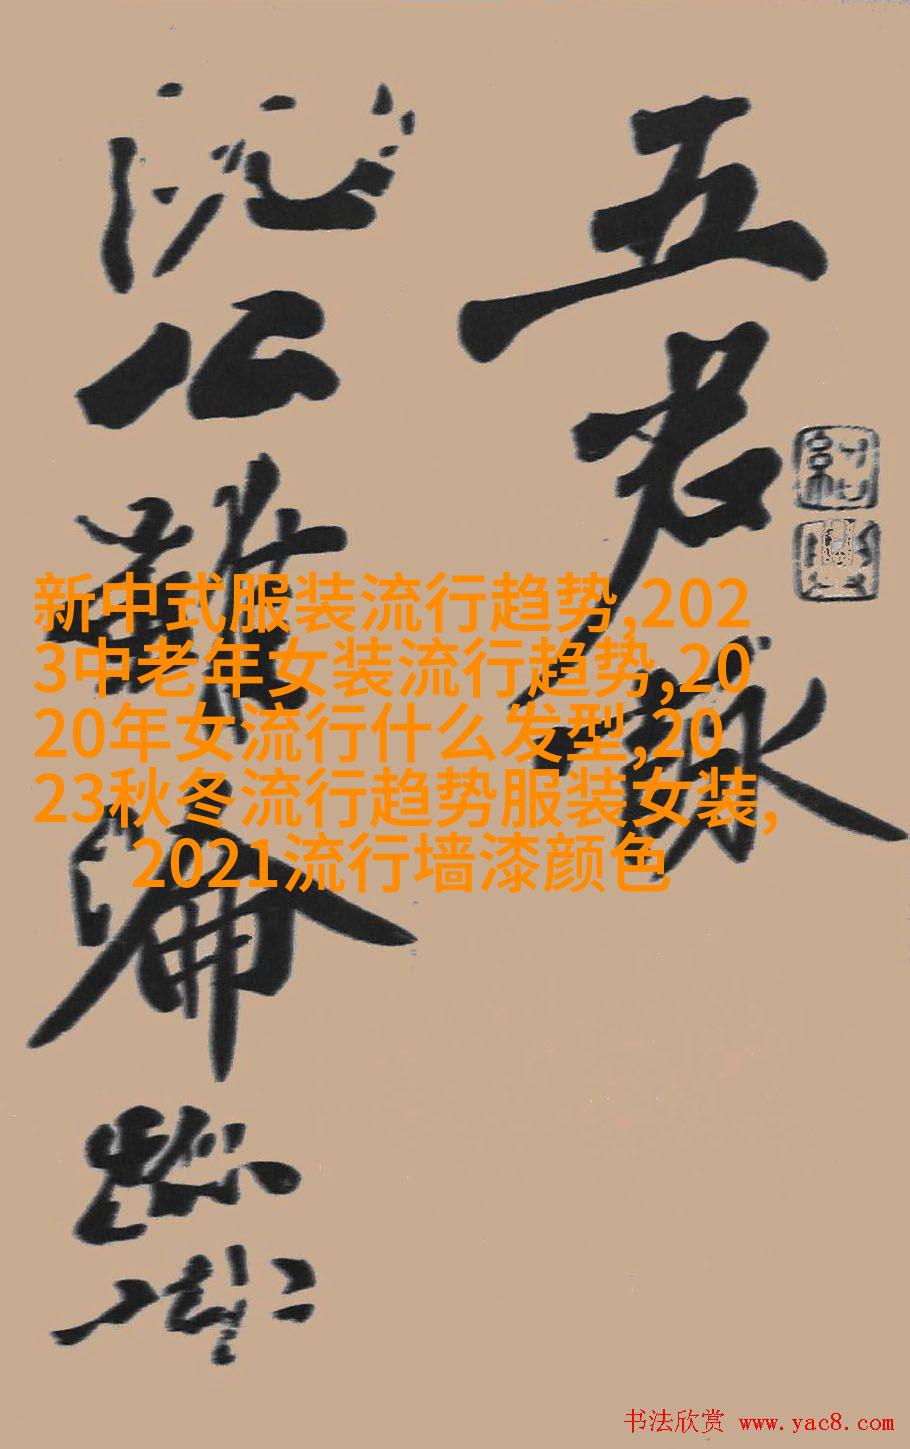 五君詠
阮公雖淪跡
新中式服装流行趋势,202
3中老年女装流行趋势,20
20年女流行什么发型,20
23秋冬流行趋势服装女装,
2021流行墙漆颜色
书法欣赏 www.yac8.com